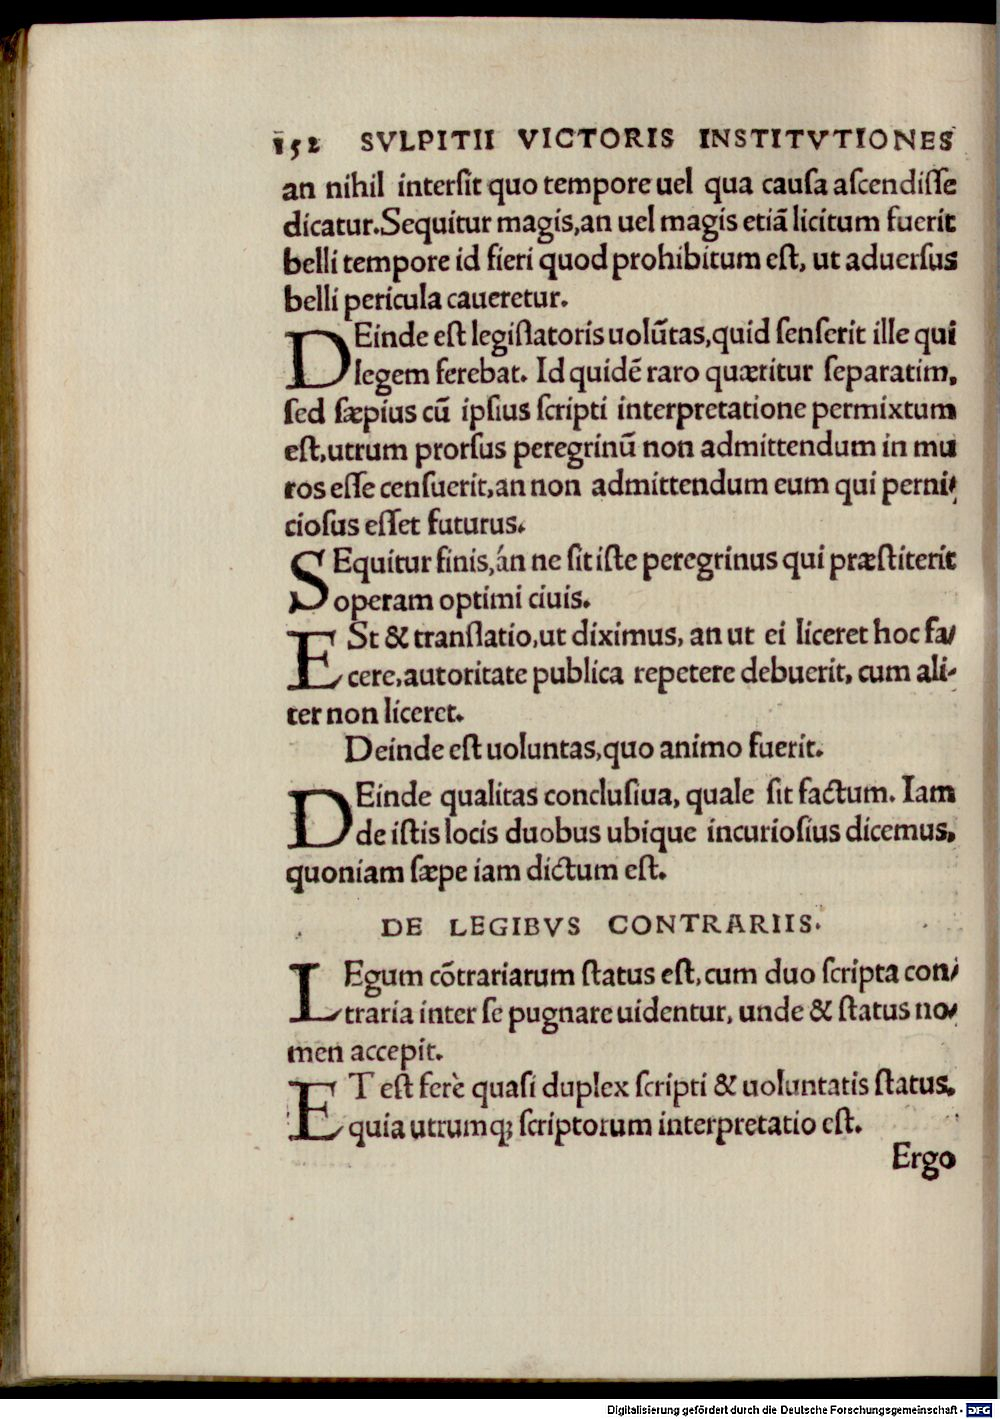 152 SVLPITII VICTORIS INSTITVTIONES
an nihil interſit quo tempore uel qua cauſa aſcendiſſe
dicatur. Sequitur magis, an uel magis etiã licitum fuerit
belli tempore id fieri quod prohibitum eſt, ut aduerſus
belli pericula caueretur.
DEinde eſt legiſlatoris uolũtas, quid ſenſerit ille qui
legem ferebat. Id quidẽ raro quæritur ſeparatim,
ſed ſæpius cũ ipſius ſcripti interpretatione permixtum
eſt, utrum prorſus peregrinũ non admittendum in mu
ros eſſe cenſuerit, an non admittendum eum qui perni-
cioſus eſſet futurus.
SEquitur finis, án ne ſit iſte peregrinus qui præſtiterit
operam optimi ciuis.
ESt & tranſlatio, ut diximus, an ut ei liceret hoc fa-
cere, autoritate publica repetere debuerit, cum ali-
ter non liceret.
Deinde eſt uoluntas, quo animo fuerit.
DEinde qualitas concluſiua, quale ſit factum. Iam
de iſtis locis duobus ubique incurioſius dicemus,
quoniam ſæpe iam dictum eſt.
DE LEGIBVS CONTRARIIS.
LEgum cõtrariarum ſtatus eſt, cum duo ſcripta con-
traria inter ſe pugnare uidentur, unde & ſtatus no-
men accepit.
ET eſt ferè quaſi duplex ſcripti & uoluntatis ſtatus,
quia utrumq; ſcriptorum interpretatio eſt.
Ergo
Digitalisierung gefördert durch die Deutsche Forschungsgemeinschaft - DFG